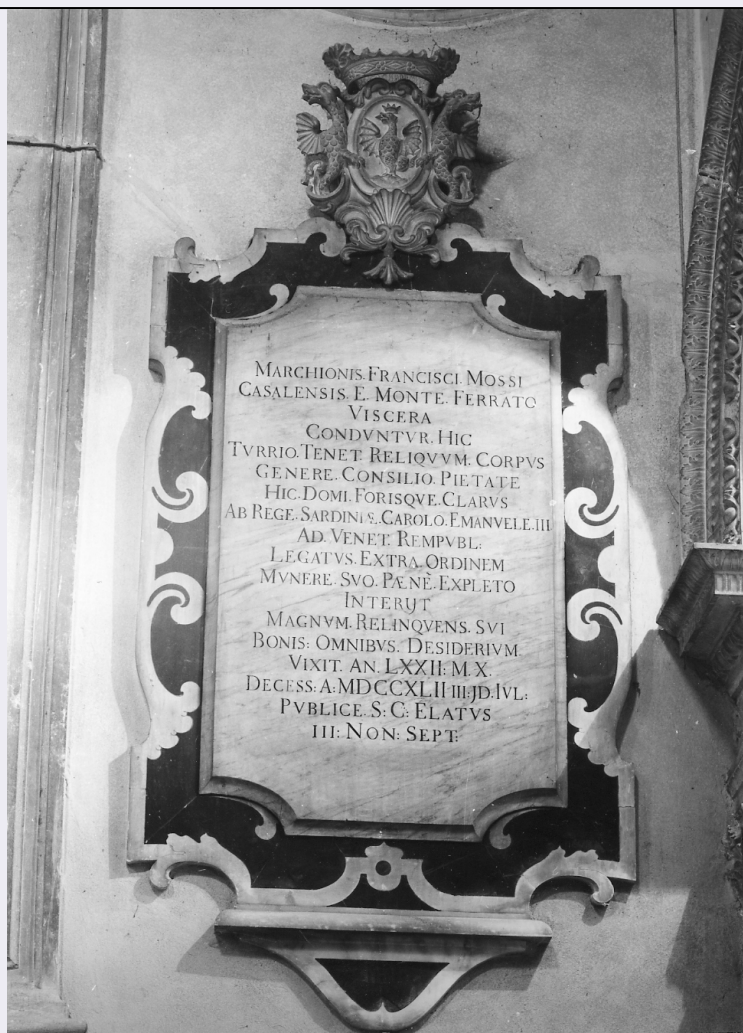 MARCHIONIS. FRANCISCI. MOSSI
CASALENSIS. E. MONTE. FERRATO
VISCERA
CONDVNTVR. HIC
TVRRIO. TENET. RELIQVVM. CORPVS
GENERE. CONSILIO. PIETATE
HIC. DOMI. FORISQVE. CLARVS
AB REGE. SARDINIÆ. CAROLO. EMANVELE. III
AD. VENET. REMPVBL:
LEGATVS. EXTRA. ORDINEM
MVNERE. SVO. PÆNE. EXPLETO
INTERIIT
MAGNVM. RELINQVENS. SVI
BONIS: OMNIBVS. DESIDERIVM.
VIXIT. AN. LXXII: M. X.
DECESS: A: MDCCXLII III: JD. IVL:
PVBLICE. S: C: ELATVS
III: NON: SEPT: